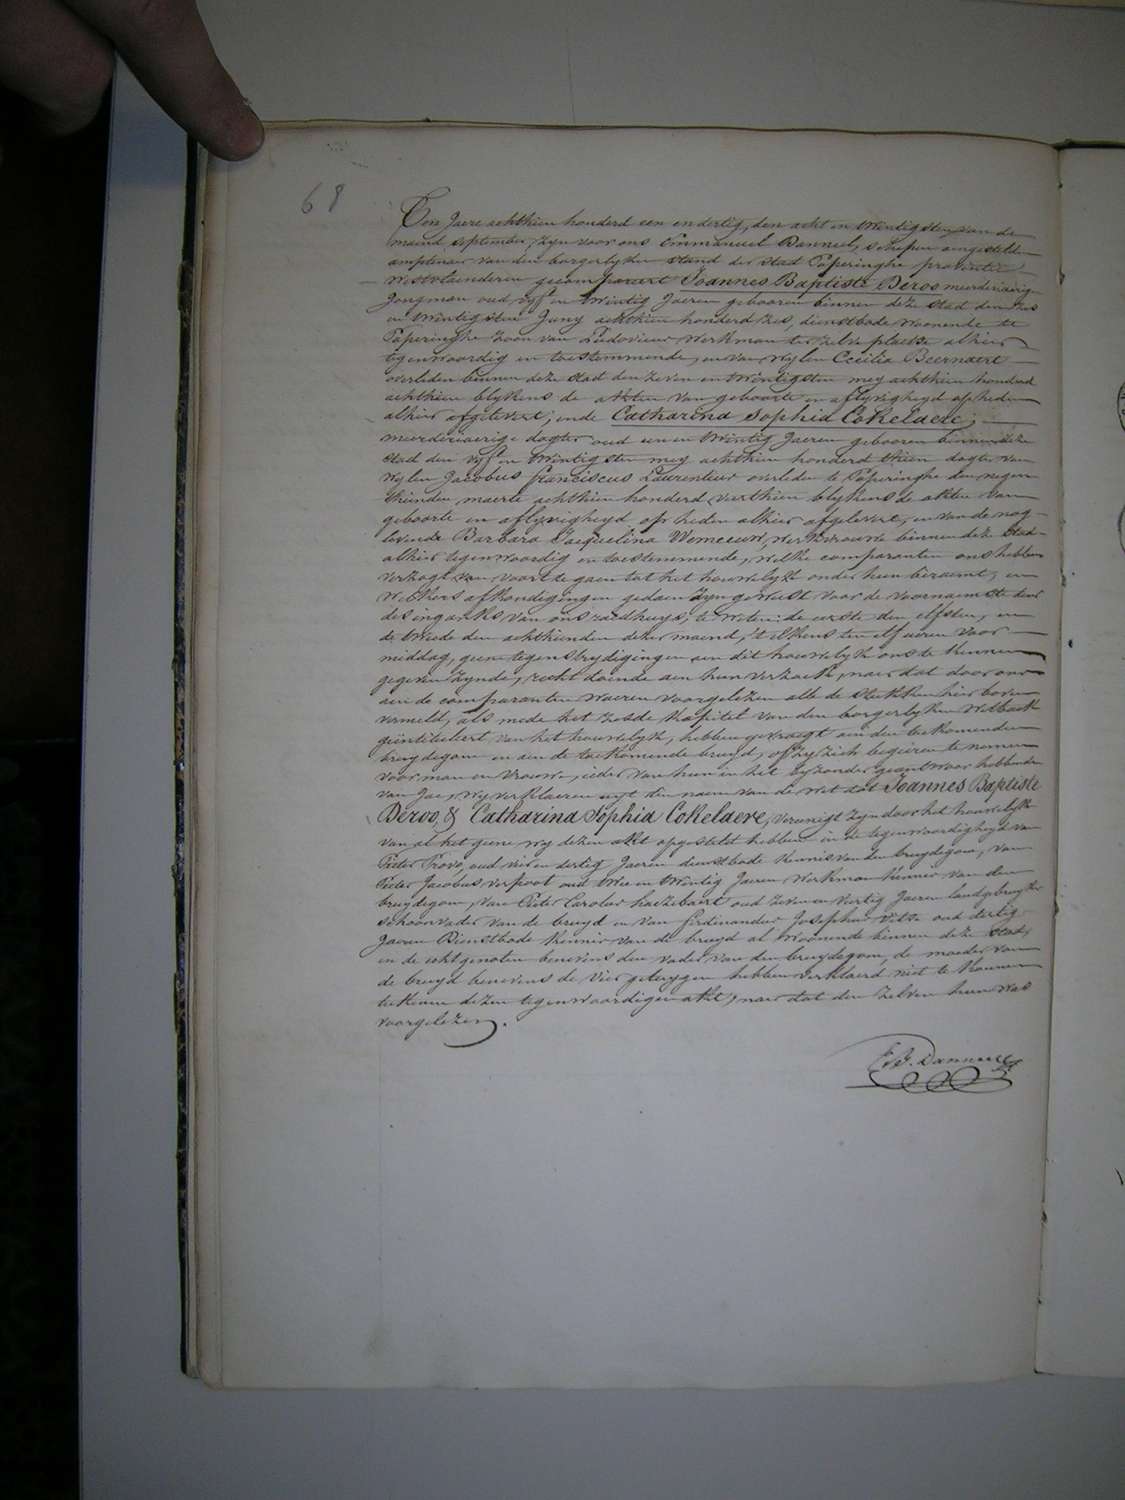 68
Ten Jaere achthien honderd een en dertig, den acht en Twintigsten van de
maend september, zyn voor ons Emmanuel Danneel, schepen aengestelden
amptenaer van den borgerlyken stand der stad Poperinghe provintie
Westvlaenderen gecompareert Joannes Baptiste Deroo meerderiaerige
Jongman oud vyf en Twintig Jaeren gebooren binnen deze stad den zes
en Twintigsten Juny achthien honderd zes, dienstbode woonende te
Poperinghe zoon van Ludovicus Werkman ter zelve plaetse alhier
tegenwoordig en toestemmende, en van wylen Cecilia Beernaert
overleden binnen deze stad den zeven en Twintigsten mey achthien honderd
achthien blykens de akten van geboorte en aflyvigheyd op heden
alhier afgelevert, ende Catharina Sophia Cokelaere,
meerderiaerige dogter oud een en Twintig Jaeren gebooren binnen deze
stad den vyf en Twintigsten mey achthien honderd thien dogter van
wylen Jacobus Franciscus Laurentius overleden te Poperinghe den negen
thienden maerte achthien honderd veerthien blykens de akten van
geboorte en aflyvigheyd op heden alhier afgelevert, en van de nog
levende Barbara Jacquelina Wemeeuw, Werkvrouwe binnen deze stad
alhier tegenwoordig en toestemmende, welke comparanten ons hebben
verzogt van voort te gaen tot het houwelyk onder hun beraemt, en
welkers afkondigingen gedaen zyn geweest voor de voornaemste deur
des ingangs van ons raedhuys, te weten: de eerste den elfsten, en
de tweede den achthienden dezer maend, t'elkens ten elf ueren voor
middag, geene tegenstrydigingen aen dit houwelyk ons te kennen
gegeven zynde, recht doende aen hun verzoek, naer dat door ons
aen de comparanten waeren voorgelezen alle de stukken hier boven
vermeld, als mede het zesde kapitel van den borgerlyken Wetboek
geïntituleert van het houwelyk, hebben gevraegt aen den toekomenden
bruydegom en aen de toekomende bruyd, of zy zich begeéren te nemen
voor man en vrouwe, ieder van hun in het byzonder geantwoor hebbende
van Jae, wy verklaeren uyt den naem van de wet dat Joannes Baptiste
Deroo, & Catharina Sophia Cokelaere, vereenigt zyn door het houwelyk
van al het geene wy dezen akt opgesteld hebben in de tegenwoordigheyd van
Pieter Provo, oud vier en dertig Jaeren dienstbode kennis van den bruydegom, van
Pieter Jacobus verpoot oud twee en Twintig Jaeren Werkman kennis van den
bruydegom, van Pieter Carolus haezebaert oud zeven en veertig Jaeren landgebruyker
schoonvader van de bruyd en van Ferdinandus Josephus oud dertig
Jaeren Dienstbode kennis van de bruyd al woonende binnen deze stad,
en de echtgenoten benevens den vader van den bruydegom, de moeder van
de bruyd benevens de vier getuygen hebben verklaerd niet te konnen
teekenen dezen tegenwoordigen akt, naer dat den zelven hun was
voorgelezen.
Danneel